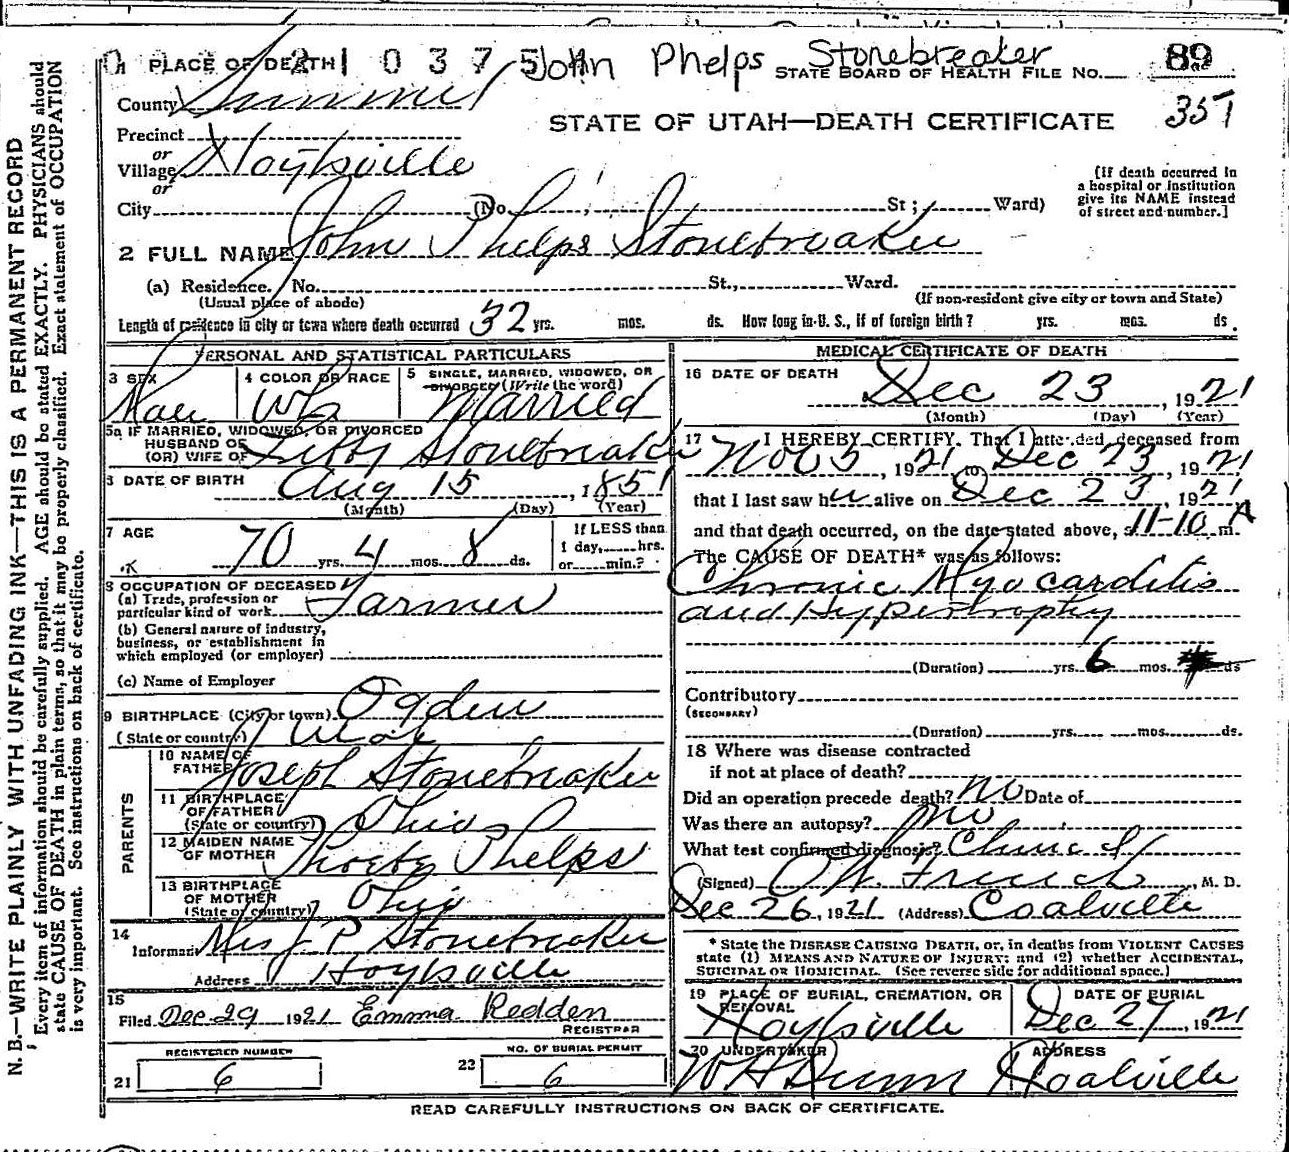 1 PLACE OF DEATH 2 1 0 3 7 5 John Phelps Stonebreaker
STATE BOARD OF HEALTH FILE No. 89
County Summit
STATE OF UTAH—DEATH CERTIFICATE 357
Precinct
or
Village Hoytsville
or
City (No. St; Ward)
(If death occurred in
a hospital or institution
give its NAME instead
of street and number.]
2 FULL NAME John Phelps Stonebreaker
(a) Residence. No. St., Ward.
(Usual place of abode) (If non-resident give city or town and State)
Length of residence in city or town where death occurred 32 yrs. mos. ds. How long in U. S., if of foreign birth? yrs. mos. ds.
PERSONAL AND STATISTICAL PARTICULARS
3 SEX Male
4 COLOR OR RACE Wh
5 SINGLE, MARRIED, WIDOWED, OR
DIVORCED (Write the word)
Married
5a IF MARRIED, WIDOWED, OR DIVORCED
HUSBAND OF
(OR) WIFE OF Libby Stonebreaker
DATE OF BIRTH Aug 15, 1851
(Month) (Day) (Year)
7 AGE 70 yrs. 4 mos. 8 ds.
If LESS than
1 day, hrs.
or min.?
8 OCCUPATION OF DECEASED
(a) Trade, profession or
particular kind of work Farmer
(b) General nature of industry,
business, or establishment in
which employed (or employer)
(c) Name of Employer
9 BIRTHPLACE (City or town) Ogden
(State or country) Utah
PARENTS
10 NAME OF
FATHER Joseph Stonebreaker
11 BIRTHPLACE
OF FATHER
(State or country) Ohio
12 MAIDEN NAME
OF MOTHER Phoeby Phelps
13 BIRTHPLACE
OF MOTHER
(State or country) Ohio
14
Informant Mrs J P Stonebreaker
Address Hoytsville
15
Filed Dec 29 1921 Emma Redden
REGISTRAR
REGISTERED NUMBER
21 6
NO. OF BURIAL PERMIT
22 6
MEDICAL CERTIFICATE OF DEATH
16 DATE OF DEATH
Dec 23, 1921
(Month) (Day) (Year)
17 I HEREBY CERTIFY, That I attended deceased from
Nov 5, 1921 to Dec 23, 1921
that I last saw h alive on Dec 23, 1921
and that death occurred, on the date stated above, 11-10 A m.
The CAUSE OF DEATH* was as follows:
Chronic Myocarditis
and Hypertrophy
(Duration) yrs. 6 mos. ds
Contributory
(SECONDARY)
(Duration) yrs. mos. ds.
18 Where was disease contracted
if not at place of death?
Did an operation precede death? No Date of
Was there an autopsy? No
What test confirmed diagnosis? Clinical
(Signed) O W. French, M. D.
Dec 26, 1921 (Address) Coalville
* State the DISEASE CAUSING DEATH, or, in deaths from VIOLENT CAUSES
state (1) MEANS AND NATURE OF INJURY; and (2) whether ACCIDENTAL,
SUICIDAL OR HOMICIDAL. (See reverse side for additional space.)
19 PLACE OF BURIAL, CREMATION, OR
REMOVAL
Hoytsville
DATE OF BURIAL
Dec 27, 1921
20 UNDERTAKER
W H Dunn
ADDRESS
Coalville
READ CAREFULLY INSTRUCTIONS ON BACK OF CERTIFICATE.
N. B.—WRITE PLAINLY WITH UNFADING INK—THIS IS A PERMANENT RECORD
Every item of information should be carefully supplied. AGE should be stated EXACTLY. PHYSICIANS should
state CAUSE OF DEATH in plain terms, so that it may be properly classified. Exact statement of OCCUPATION
is very important. See instructions on back of certificate.